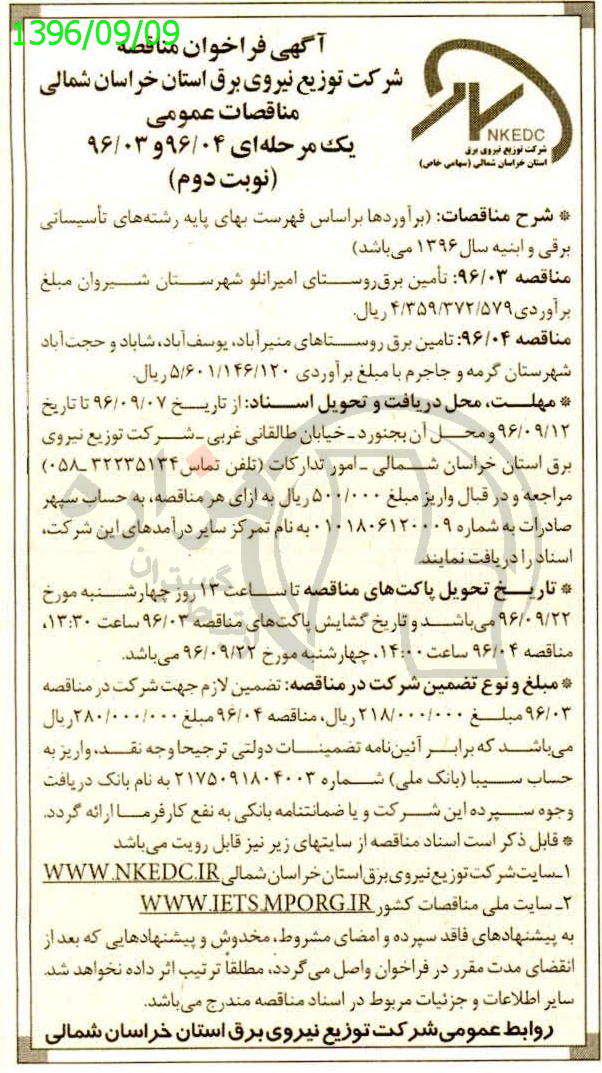 1396/09/09
آگهی فراخوان مناقصه
شرکت توزیع نیروی برق استان خراسان شمالی
مناقصات عمومی
یک مرحله‌ای ۹۶/۰۴ و ۹۶/۰۳
(نوبت دوم)
NKEDC
شرکت توزیع نیروی برق
استان خراسان شمالی (سهامی خاص)
* شرح مناقصات: (برآوردها براساس فهرست بهای پایه رشته‌های تأسیساتی
برقی و ابنیه سال ۱۳۹۶ می‌باشد)
مناقصه ۹۶/۰۳: تأمین برق روستای امیرانلو شهرستان شیروان مبلغ
برآوردی ۴/۳۵۹/۳۷۲/۵۷۹ ریال.
مناقصه ۹۶/۰۴: تامین برق روستاهای منیرآباد، یوسف‌آباد، شاباد و حجت‌آباد
شهرستان گرمه و جاجرم با مبلغ برآوردی ۵/۶۰۱/۱۴۶/۱۲۰ ریال.
* مهلت، محل دریافت و تحویل اسناد: از تاریخ ۹۶/۰۹/۰۷ تا تاریخ
۹۶/۰۹/۱۲ و محل آن بجنورد ـ خیابان طالقانی غربی ـ شرکت توزیع نیروی
برق استان خراسان شمالی ـ امور تدارکات (تلفن تماس ۳۲۲۳۵۱۳۴ ـ۰۵۸)
مراجعه و در قبال واریز مبلغ ۵۰۰/۰۰۰ ریال به ازای هر مناقصه، به حساب سپهر
صادرات به شماره ۰۱۰۱۸۰۶۱۲۰۰۰۹ به نام تمرکز سایر درآمدهای این شرکت،
اسناد را دریافت نمایند.
* تاریخ تحویل پاکت‌های مناقصه تا ساعت ۱۳ روز چهارشنبه مورخ
۹۶/۰۹/۲۲ می‌باشد و تاریخ گشایش پاکت‌های مناقصه ۹۶/۰۳ ساعت ۱۳:۳۰،
مناقصه ۹۶/۰۴ ساعت ۱۴:۰۰، چهارشنبه مورخ ۹۶/۰۹/۲۲ می‌باشد.
* مبلغ و نوع تضمین شرکت در مناقصه: تضمین لازم جهت شرکت در مناقصه
۹۶/۰۳ مبلغ ۲۱۸/۰۰۰/۰۰۰ ریال، مناقصه ۹۶/۰۴ مبلغ ۲۸۰/۰۰۰/۰۰۰ ریال
می‌باشد که برابر آئین‌نامه تضمینات دولتی ترجیحا وجه نقد، واریز به
حساب سیبا (بانک ملی) شماره ۲۱۷۵۰۹۱۸۰۴۰۰۳ به نام بانک دریافت
وجوه سپرده این شرکت و یا ضمانتنامه بانکی به نفع کارفرما ارائه گردد.
* قابل ذکر است اسناد مناقصه از سایتهای زیر نیز قابل رویت می‌باشد
۱ـ سایت شرکت توزیع نیروی برق استان خراسان شمالی WWW.NKEDC.IR
۲ـ سایت ملی مناقصات کشور WWW.IETS.MPORG.IR
به پیشنهادهای فاقد سپرده و امضای مشروط، مخدوش و پیشنهادهایی که بعد از
انقضای مدت مقرر در فراخوان واصل می‌گردد، مطلقاً ترتیب اثر داده نخواهد شد.
سایر اطلاعات و جزئیات مربوط در اسناد مناقصه مندرج می‌باشد.
روابط عمومی شرکت توزیع نیروی برق استان خراسان شمالی